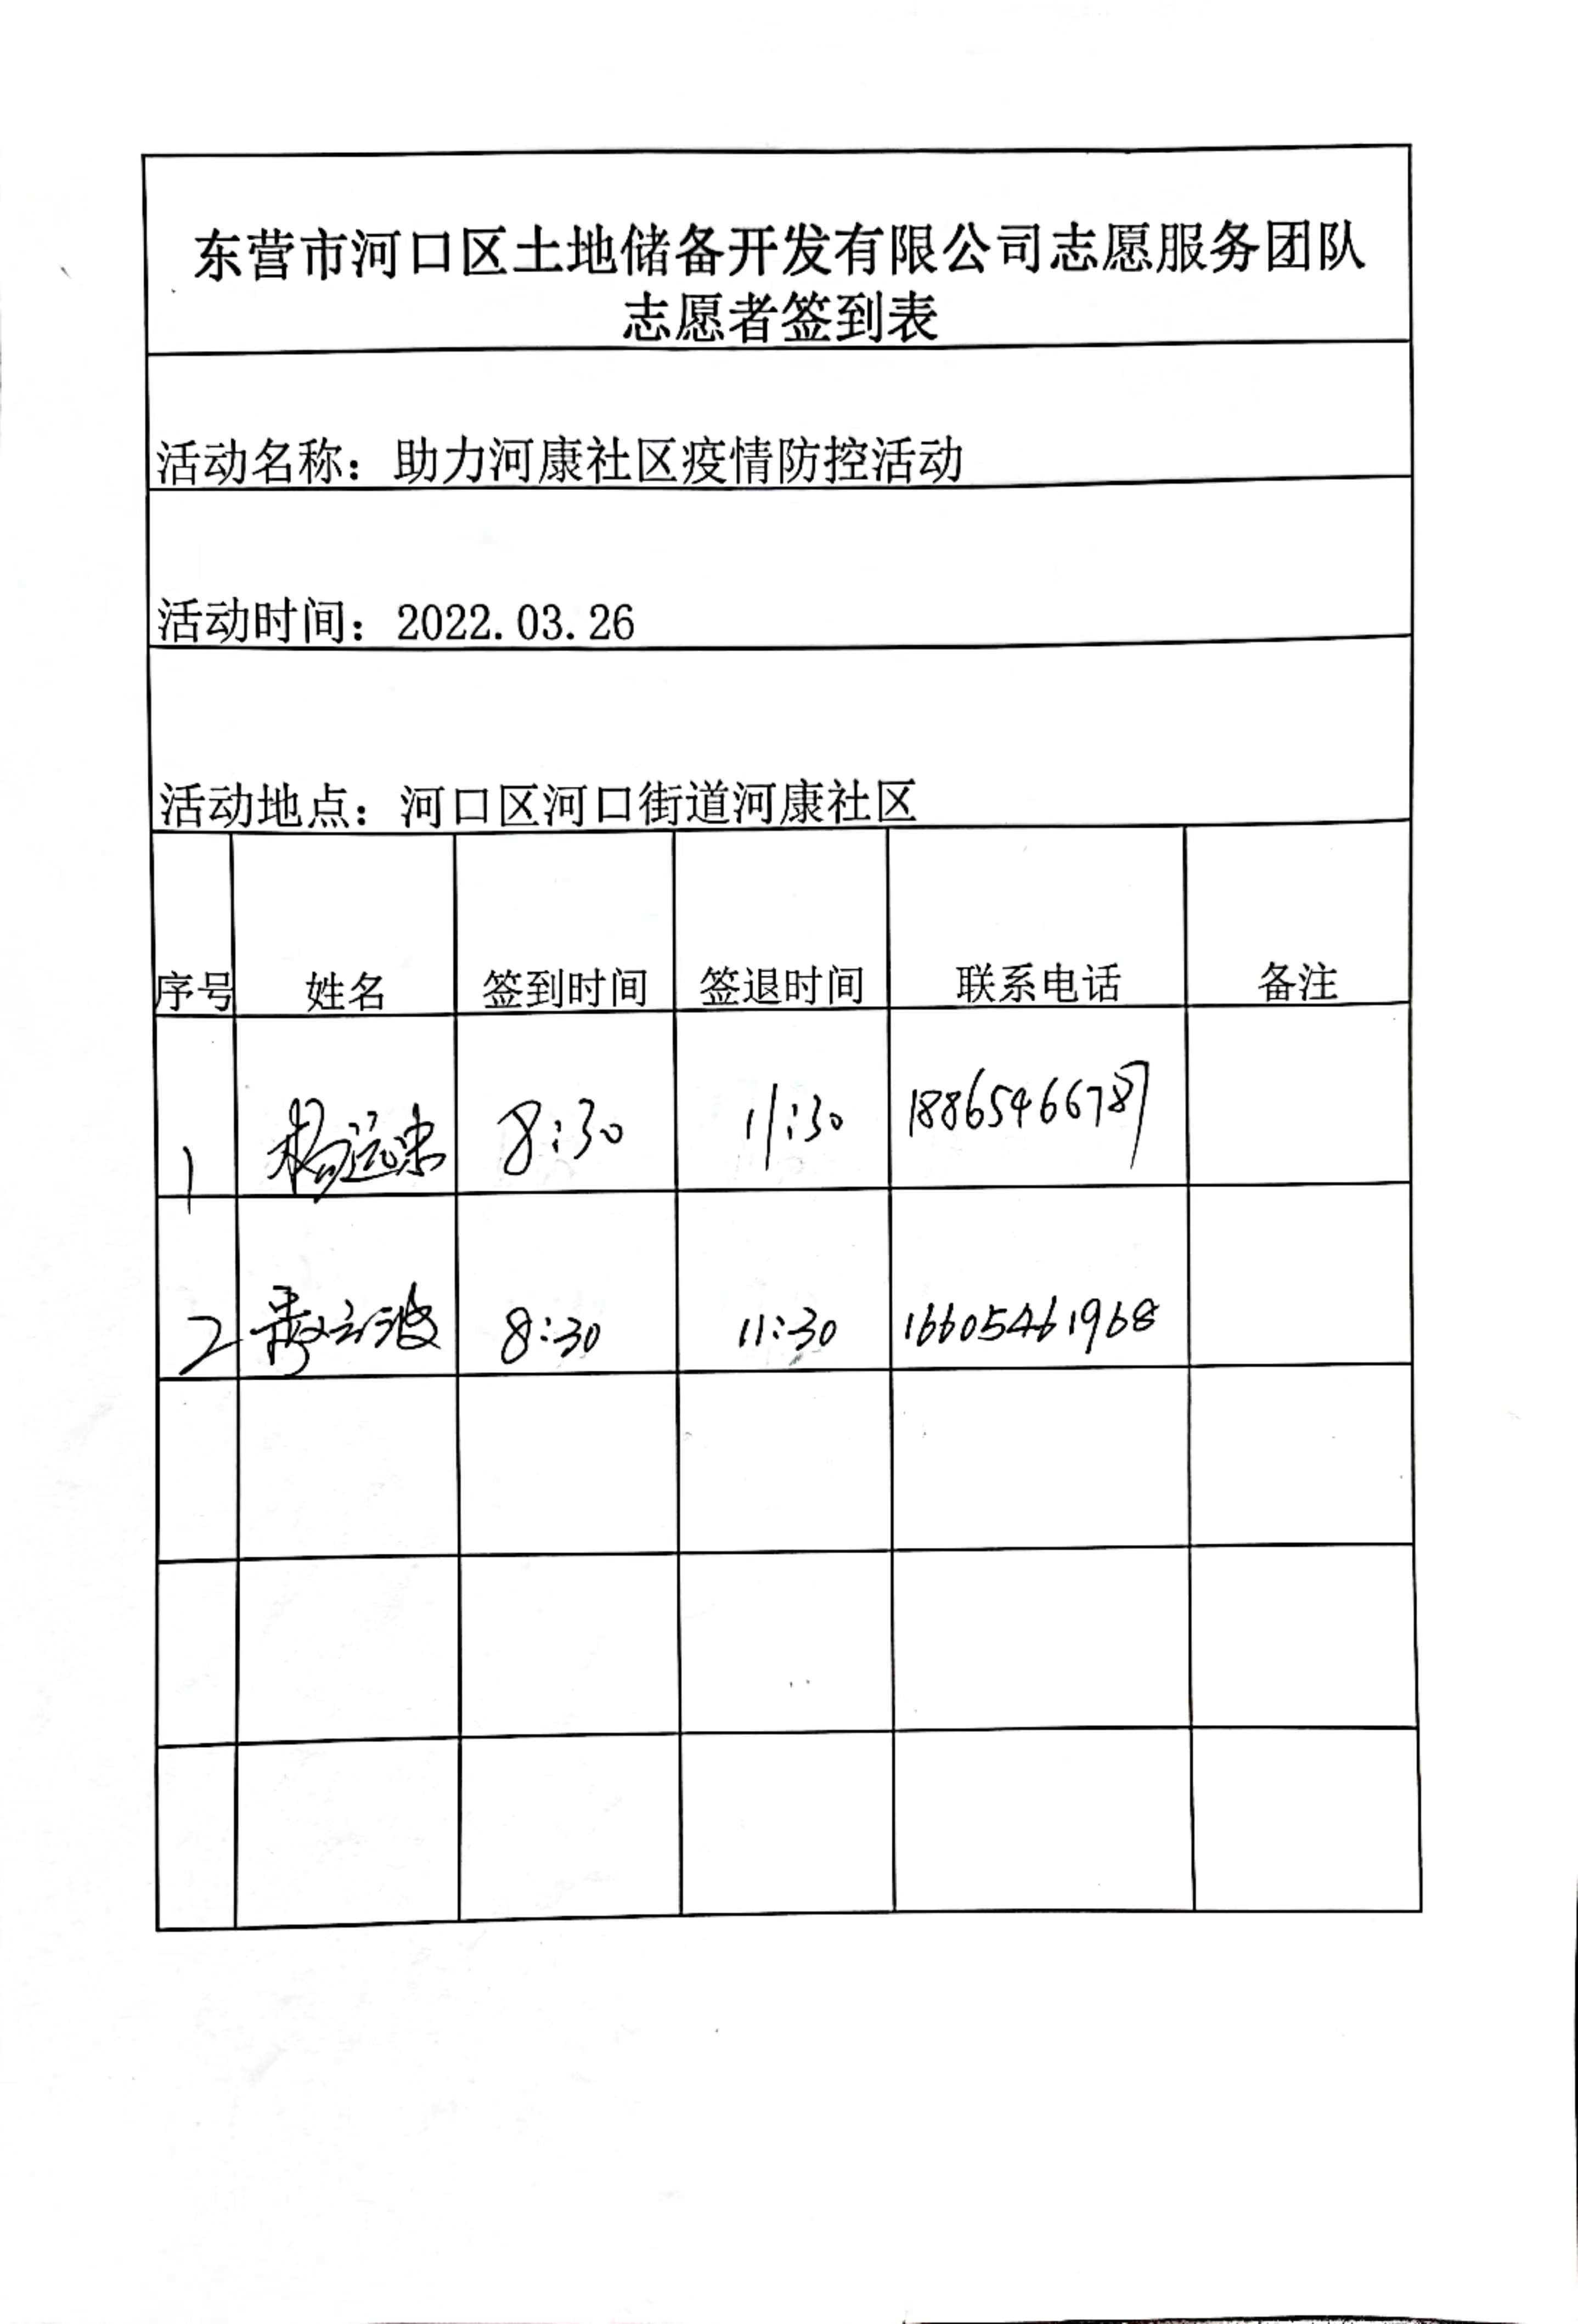 东营市河口区土地储备开发有限公司志愿服务团队
志愿者签到表
活动名称：助力河康社区疫情防控活动
活动时间：2022.03.26
活动地点：河口区河口街道河康社区
序号 姓名 签到时间 签退时间 联系电话 备注
1 杨远忠 8:30 11:30 18865466787
2 8:30 11:30 16605461968